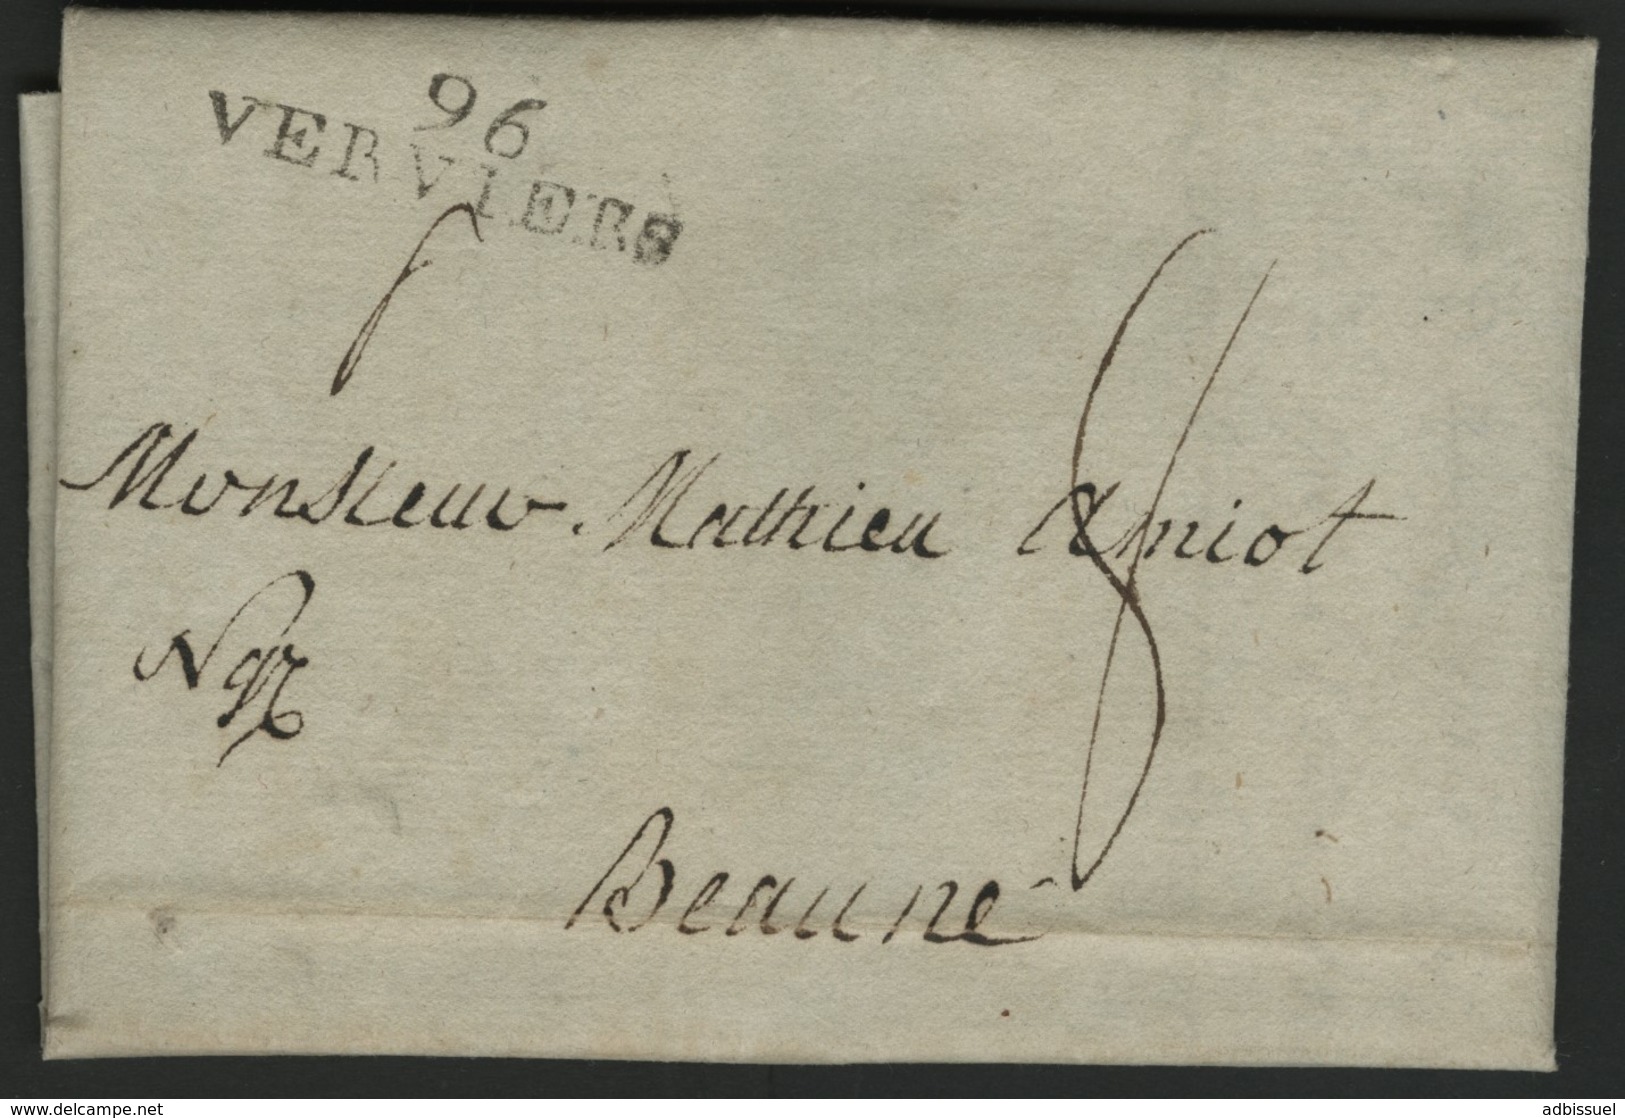 96
VERVIERS
8
Monsieur Mathieu Amiot
Ngt
Beaune
www.delcampe.net
adbissuel